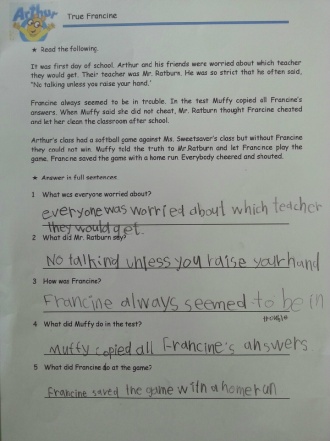 Arthur
True Francine
★ Read the following.
It was first day of school. Arthur and his friends were worried about which teacher
they would get. Their teacher was Mr. Ratburn. He was so strict that he often said,
"No talking unless you raise your hand.'
Francine always seemed to be in trouble. In the test Muffy copied all Francine's
answers. When Muffy said she did not cheat, Mr. Ratburn thought Francine cheated
and let her clean the classroom after school.
Arthur's class had a softball game against Ms. Sweetwater's class but without Francine
they could not win. Muffy told the truth to Mr.Ratburn and let Francince play the
game. Francne saved the game with a home run Everybody cheered and shouted.
★ Answer in full sentences
1 What was everyone worried about?
everyone was worried about which teacher
they would get.
2 What did Mr. Ratburn say?
No talking unless you raise your hand
3 How was Francine?
Francine always seemed to be in
trouble
4 What did Muffy do in the test?
Muffy copied all Francine's answers
5 What did Francine do at the game?
Francine saved the game with a home run